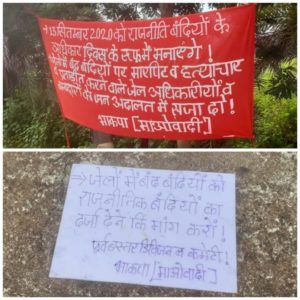 → 13 सितम्बर 2020 को राजनीति बंदियों के
अधिकार दिवस के रूप में मनाएंगे!
जेलों में बंद बंदियों पर मारपिट व हत्याचार
व प्रताड़ित करने वाले जेल अधिकारीयों व
को जन अदालत में सजा दो!
भाकपा [माओवादी]
→ जेलों में बंद बंदियों को
राजनीतिक बंदियों का
दर्जा देने कि मांग करों!
पूर्व बस्तर डिविजनल कमेटी!
भाकपा [माओवादी]